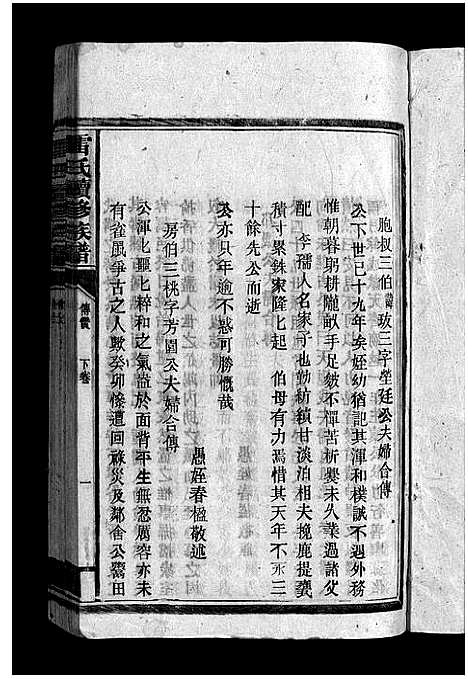 胞叔三伯諱琁三字瑩廷公夫婦合傳
公下世已十九年矣姪幼猶記其渾和樸誠不遇外務
惟朝暮躬耕隴畝手足皴不憚苦析爨未久業過諸父
配 李孺人名家子也紡紡績甘淡泊相夫挽鹿提甕
積寸累銖家隆隆起 伯母有力焉惜其天年不永三
十餘先公而逝
公亦只年逾不惑可勝慨哉
愚姪春楹敬述
房伯三桃字芳園公夫婦合傳
公渾渾噩噩粹和之氣盎於面背平生無忿厲容亦未
有雀鼠爭古之人歟癸卯慘遭回祿災及鄰舍公鬻田
雷氏續修族譜
傳贊 下卷 一